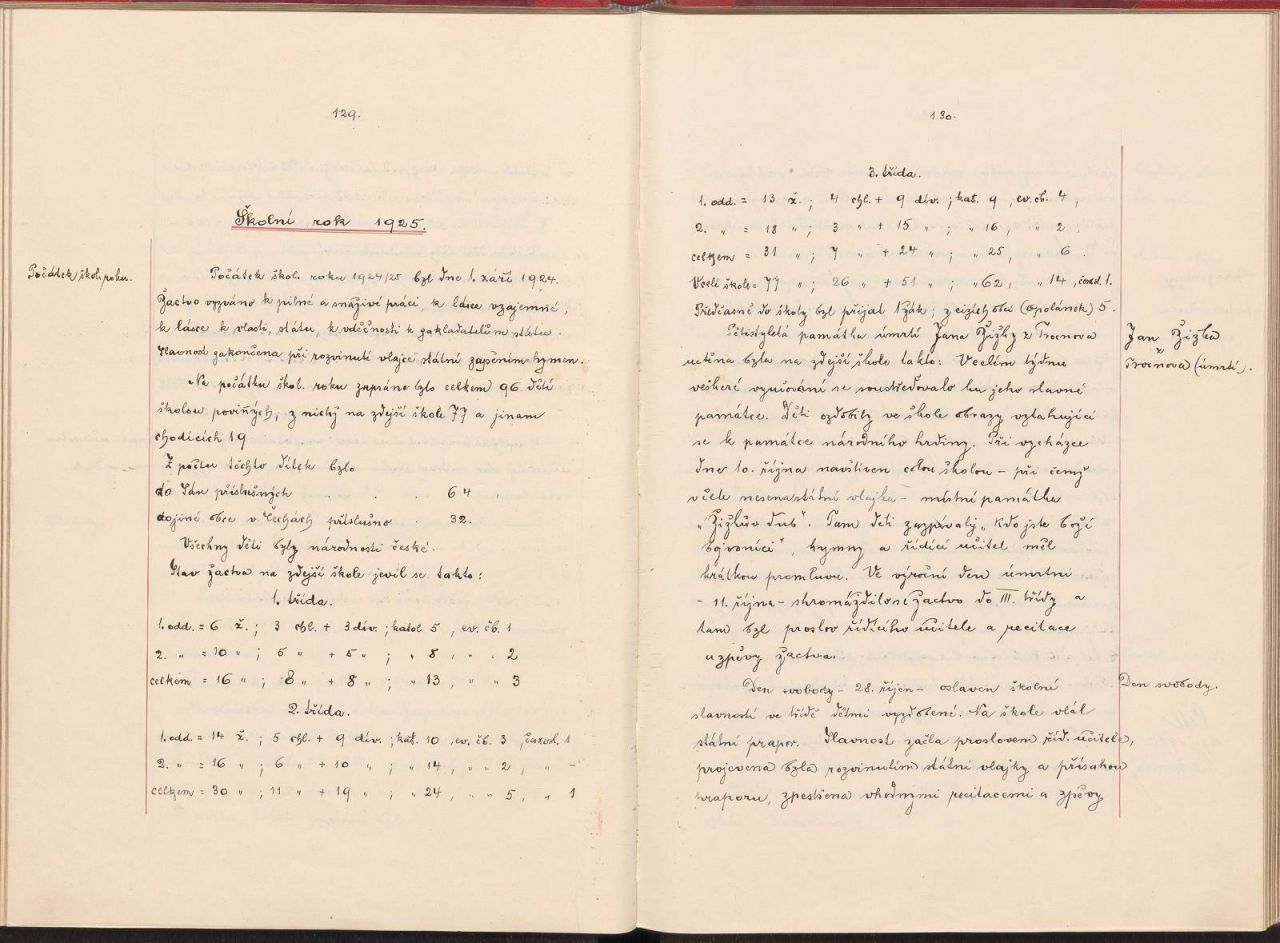 129.
Školní rok 1925.
Počátek škol. roku.
Počátek škol. roku 1924/25 byl dne 1. září 1924.
Žactvo vyzváno k pilné a snaživé práci, k lásce vzájemné,
k lásce k vlasti, státu, k vděčnosti k zakladatelům státu.
Slavnost zakončena při rozvinutí vlajky státní zapěním hymen.
Na počátku škol. roku zapsáno bylo celkem 96 dětí
školou povinných, z nichž na zdejší škole 77 a jinam
chodících 19
Z počtu těchto dítek bylo
do Sán příslušných . . . 64
do jiné obce v Čechách příslušno . 32.
Všechny děti byly národnosti české.
Stav žactva na zdejší škole jevil se takto:
1. třída.
1. odd. = 6 ž.; 3 chl. + 3 dív.; katol 5, ev. čb. 1
2. " = 10 "; 5 " + 5 "; " 8, " . 2
celkem = 16 "; 8 " + 8 "; " 13, " " 3
2. třída.
1. odd. = 14 ž.; 5 chl. + 9 dív.; kat. 10, ev. čb. 3, 1
2. " = 16 "; 6 " + 10 "; " 14, " " 2, " -
celkem = 30 "; 11 " + 19 "; " 24, " " 5, " 1
130.
3. třída.
1. odd. = 13 ž.; 4 chl. + 9 dív.; kat. 9, ev. čb. 4,
2. " = 18 "; 3 " + 15 "; " 16, " 2,
celkem = 31 "; 7 " + 24 "; " 25, " 6.
V celé škole = 77 "; 26 " + 51 " " 62, " 14, 1.
Předčasně do školy byl přijat 1 žák; z cizích obcí (Opolánek) 5.
Pětistyletá památka úmrtí Jana Žižky z Trocnova
Jan Žižka
uctěna byla na zdejší škole takto: V celém týdnu
z
Trocnova (úmrtí).
veškeré vyučování se soustřeďovalo ku jeho slavné
památce. Děti ozdobily ve škole obrazy vztahující
se k památce národního hrdiny. Při vycházce
dne 10. října navštíven celou školou – při čemž
v čele nesena státní vlajka – místní památka
„Žižkův dub". Tam děti zazpívaly „Kdo jste boží
bojovníci", hymny a řídící učitel měl
krátkou promluvu. Ve výroční den úmrtní
– 11. října – shromáždilo se žactvo do III. třídy a
tam byl proslov řídícího učitele a recitace
a zpěvy žactva.
Den svobody – 28. říjen – oslaven školní
Den svobody.
slavností ve třídě dětmi vyzdobené. Na škole vlál
státní prapor. Slavnost začla proslovem říd. učitele,
projevena byla rozvinutím státní vlajky a přísahou
praporu, zpestřena vhodnými recitacemi a zpěvy